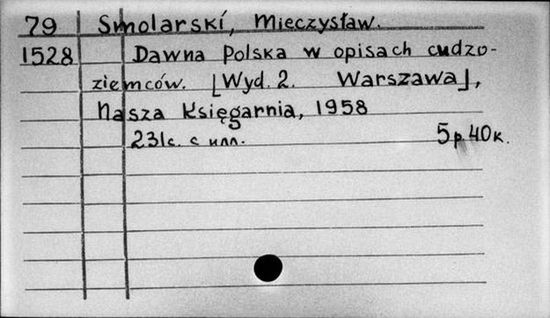 79 Smolarskí, Mieczysław.
1528 Dawna Polska w opisach cudzo-
ziemców. [Wyd. 2. Warszawa],
Nasza Księgarnia, 1958
231с. с илл. 5 р. 40 к.